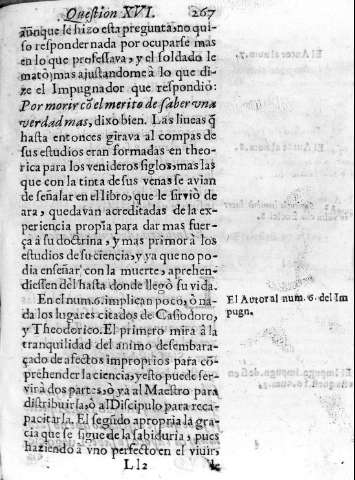 Question XVI. 267
aunque se hizo esta pregunta, no qui-
so responder nada por ocuparse mas
en lo que professava, y el soldado le
mato, mas ajustandome à lo que di-
ze el Impugnador que respondiò:
Por morir cõ el merito de saber vna
verdad mas, dixo bien. Las lineas q̃
hasta entonces girava al compas de
sus estudios eran formadas en theo-
rica para los venideros siglos, mas las
que con la tinta de sus venas se avian
de señalar en el libro, que le sirviò de
ara, quedavan acreditadas de la ex-
periencia propia para dar mas fuer-
ça à su doctrina, y mas primor à los
estudios de su ciencia, y ya que no po-
dia enseñar con la muerte, aprehen-
diessen del hasta donde llegò su vida.
En el num. 6. implican poco, ò na-
da los lugares citados de Casiodoro,
y Theodorico. El primero mira à la
tranquilidad del animo desembara-
çado de afectos improprios para cõ-
prehender la ciencia, y esto puede ser-
vir à dos partes, ò ya al Maestro para
distribuirla, ò al Discipulo para reca-
pacitarla. El segũdo apropria la gra-
cia que se sigue de la sabiduria, pues
haziendo à vno perfecto en el viuir,
Ll2 de
El Autor al num. 6. del Im
pugn.